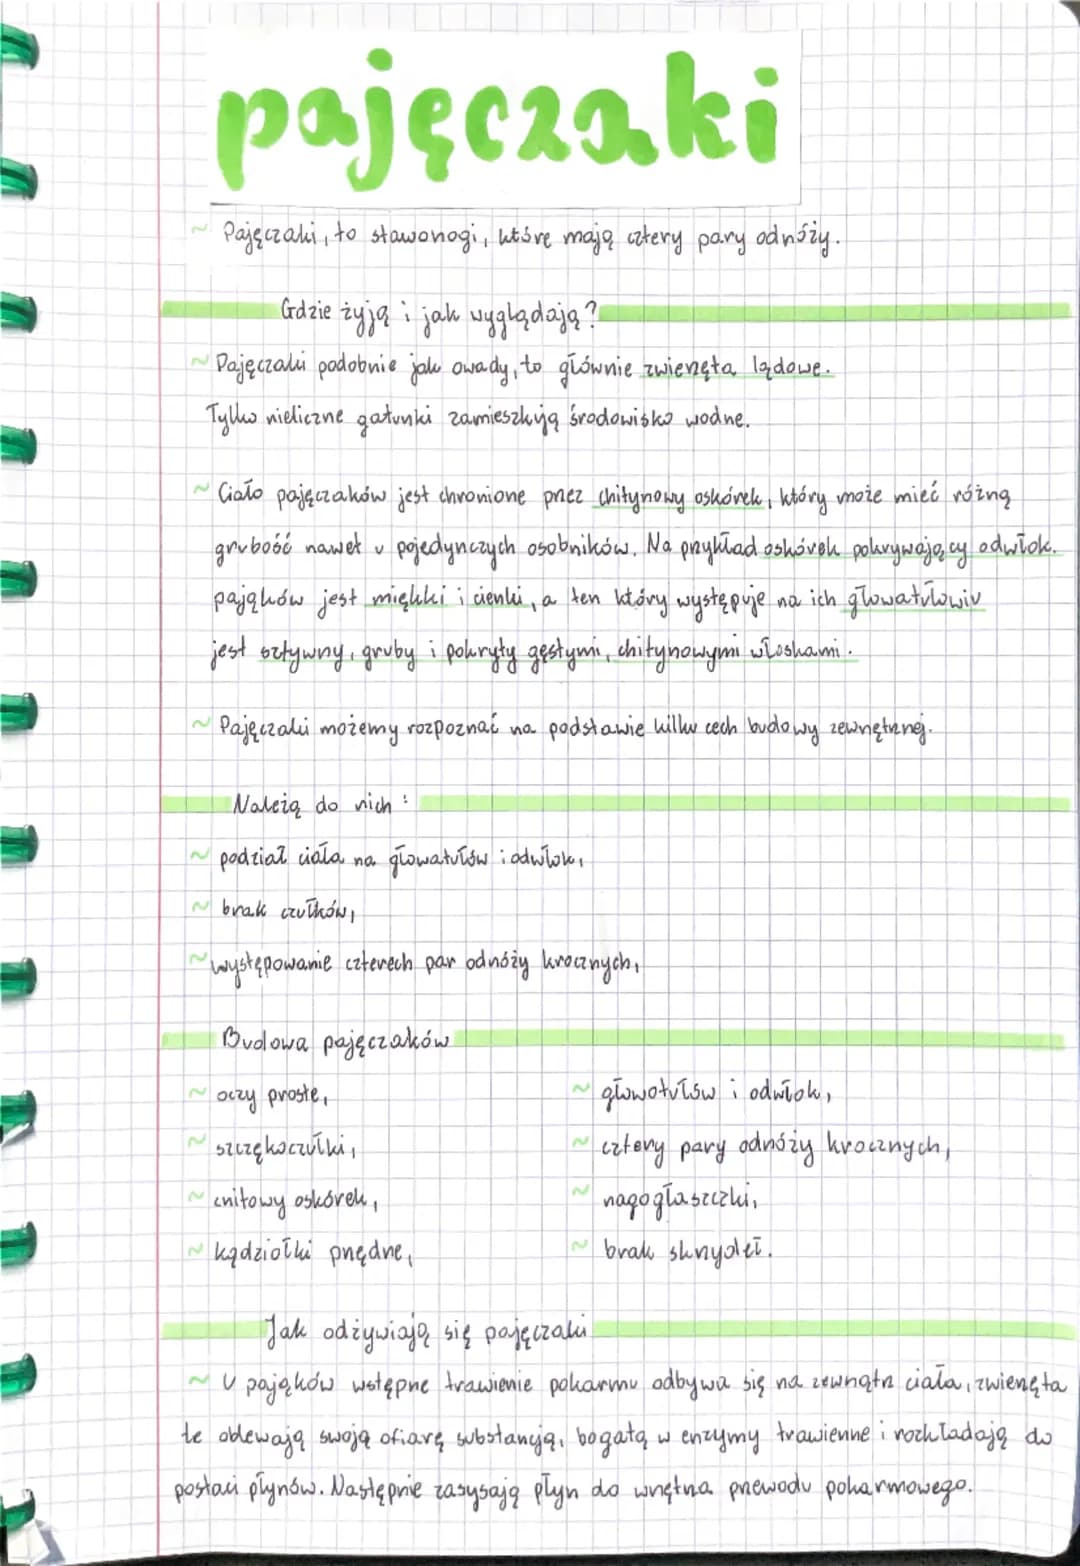 pajęczaki
~ Pajęczaki, to stawonogi, które mają cztery pary odnóży.
Gdzie żyją i jak wyglądają?
~ Pajęczaki podobnie jak owady, to głównie zwierzęta lądowe.
Tylko nieliczne gatunki zamieszkują środowisko wodne.
~ Ciało pajęczaków jest chronione przez chitynowy oskórek, który może mieć różną
grubość nawet u pojedynczych osobników. Na przykład oskórek pokrywający odwłok
pająków jest miękki i cienki, a ten który występuje na ich głowatułowiu
jest sztywny, gruby i pokryty gęstymi, chitynowymi włoskami.
~ Pajęczaki możemy rozpoznać na podstawie kilku cech budowy zewnętrznej.
Należą do nich:
~ podział ciała na głowatułów i odwłok,
~ brak czułków,
~ występowanie czterech par odnóży krocznych,
Budowa pajęczaków
~ oczy proste,
~ szczękoczułki,
~ chitowy oskórek,
~ kądziołki przędne,
~ głowotułów i odwłok,
~ cztery pary odnóży krocznych,
~ nagogłaszczki,
~ brak skrzydeł.
Jak odżywiają się pajęczaki
~ U pająków wstępne trawienie pokarmu odbywa się na zewnątrz ciała, zwierzęta
te oblewają swoją ofiarę substancją, bogatą w enzymy trawienne i rozkładają do
postaci płynów. Następnie zasysają płyn do wnętrza przewodu pokarmowego.